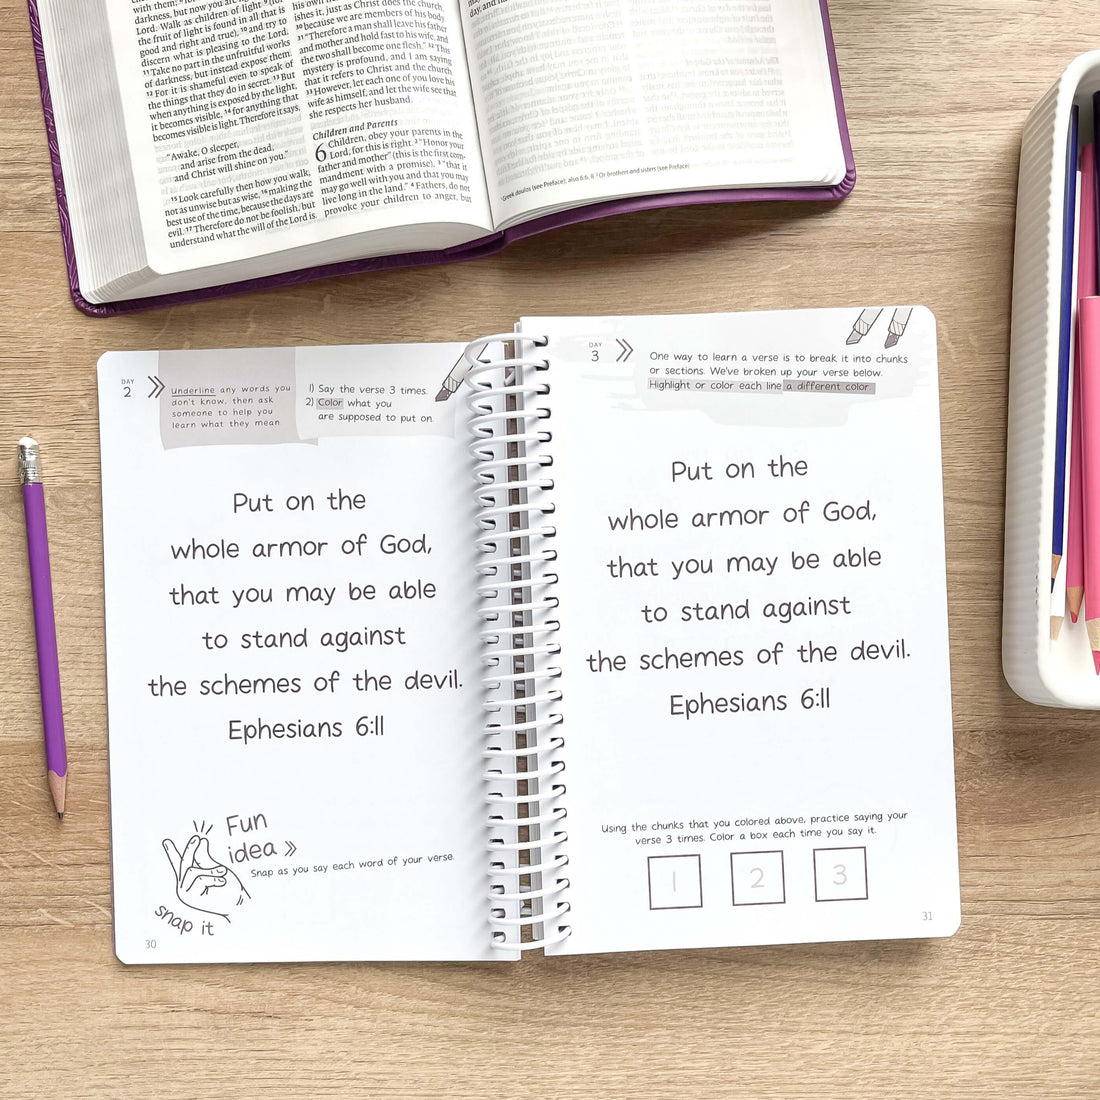 with them;
darkness, but now you are light
Lord. Walk as children of light
the fruit of light is found in all that is
good and right and true), 10 and try to
discern what is pleasing to the Lord.
11 Take no part in the unfruitful works
of darkness, but instead expose them.
12 For it is shameful even to speak of
the things that they do in secret. 13 But
when anything is exposed by the light,
it becomes visible, 14 for anything that
becomes visible is light. Therefore it says,
"Awake, O sleeper,
and arise from the dead,
and Christ will shine on you."
15 Look carefully then how you walk,
not as unwise but as wise, 16 making the
best use of the time, because the days are
evil. 17 Therefore do not be foolish, but
understand what the will of the Lord is.
his own
ishes it, just as Christ does the church,
30 because we are members of his body.
31 "Therefore a man shall leave his father
and mother and hold fast to his wife, and
the two shall become one flesh." 32 This
mystery is profound, and I am saying
that it refers to Christ and the church.
33 However, let each one of you love his
wife as himself, and let the wife see that
she respects her husband.
Children and Parents
6 Children, obey your parents in the
Lord, for this is right. 2 "Honor your
father and mother" (this is the first com-
mandment with a promise), 3 "that it
may go well with you and that you may
live long in the land." 4 Fathers, do not
provoke your children to anger, but
day, and
1 Greek doulos (see Preface); also 6:6, 8 2 Or brothers and sisters (see Preface)
DAY
2
Underline any words you
don't know, then ask
someone to help you
learn what they mean.
1) Say the verse 3 times.
2) Color what you
are supposed to put on.
Put on the
whole armor of God,
that you may be able
to stand against
the schemes of the devil.
Ephesians 6:11
Fun
idea
Snap as you say each word of your verse.
snap it
30
DAY
3
One way to learn a verse is to break it into chunks
or sections. We've broken up your verse below.
Highlight or color each line a different color.
Put on the
whole armor of God,
that you may be able
to stand against
the schemes of the devil.
Ephesians 6:11
Using the chunks that you colored above, practice saying your
verse 3 times. Color a box each time you say it.
1 2 3
31